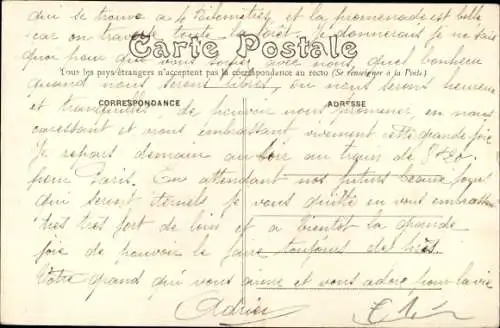 qui se trouve a 4 Kilomètres et la promenade est belle
car on traverse toute la foret je donnerais je ne sais
Carte Postale
quoi pour que vous soyez avec nous, quel bonheur
Tous les pays étrangers n'acceptent pas la correspondance au recto (Se renseigner à la Poste)
quand nous serons libres, ou nous serons heureux
CORRESPONDANCE
ADRESSE
et tranquilles de pouvoir nous promener, en nous
caressant et nous embrassant vivement cette grande joie
Je repars demain au soir au train de
pour Paris. En attendant nos futurs beaux jours
qui seront éternels je vous quitte en vous embrassant
très très fort de loin et a bientôt la grande
joie de pouvoir le faire toujours de près.
Votre grand qui vous aime et vous adore pour la vie
Adrien